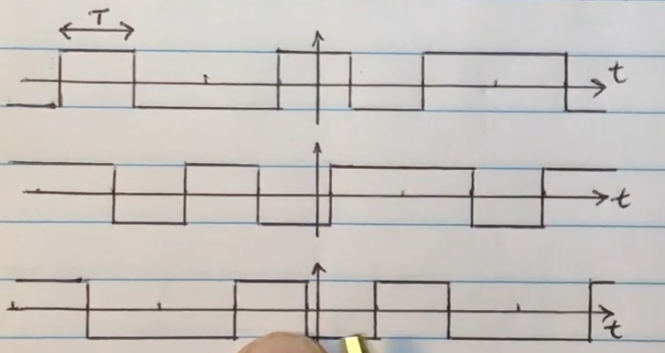 T
t
t
t